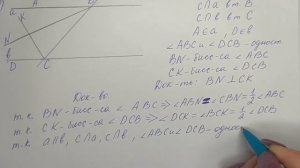 A
N
B
D
C
c∩a в т B
c∩b в т C
A∈a, D∈b
∠ABC и ∠DCB - одност.
BN - бисс-са ∠ABC
CK - бисс-са ∠DCB
Док-ть: BN⊥CK
Док-во:
т.к. BN - бисс-са ∠ABC ⇒ ∠ABN = ∠CBN = 1/2 ∠ABC
т.к. CK - бисс-са ∠DCB ⇒ ∠DCK = ∠BCK = 1/2 ∠DCB
т.к. a∥b, c∩a, c∩b, ∠ABC и ∠DCB - одност